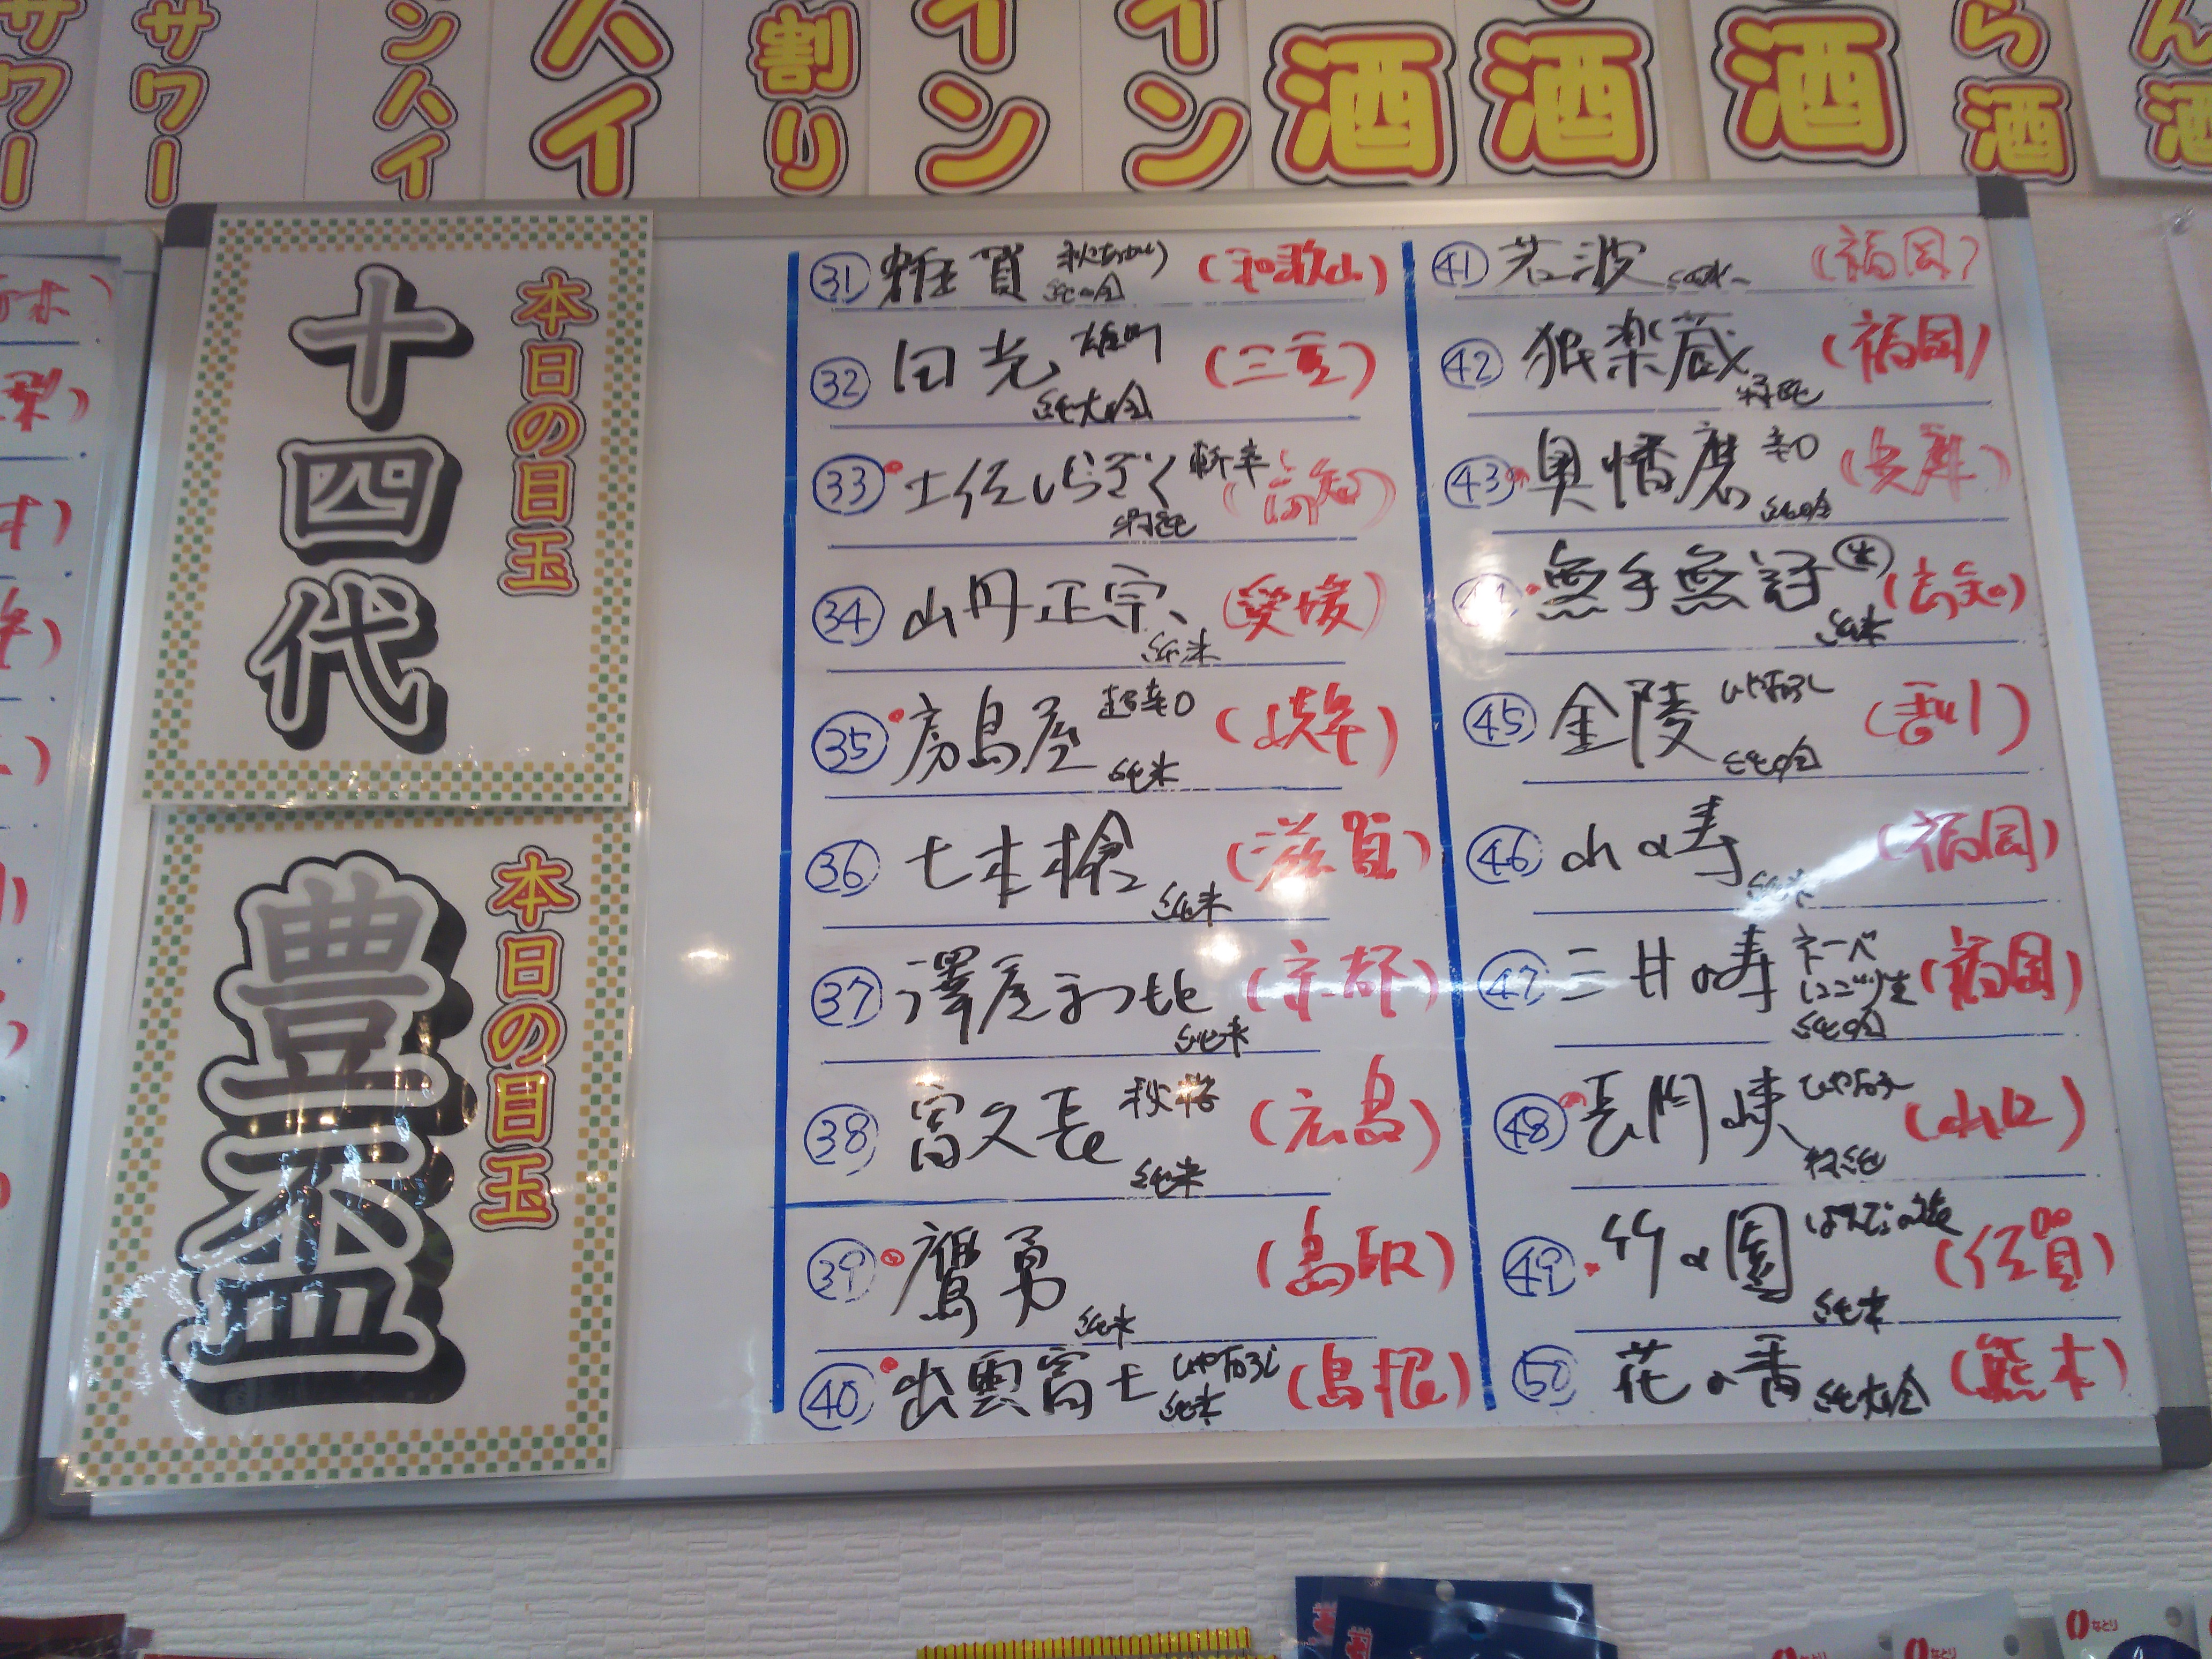 サワー
サワー
ンハイ
ハイ
割り
イン
イン
酒
酒
酒
ら酒
ん酒
本日の目玉
十四代
本日の目玉
豊盃
㉛ 雑賀 純吟 (和歌山)
㉜ 田光 雄町 純大吟 (三重)
㉝ 土佐しらぎく 斬辛 特純 (高知)
㉞ 山丹正宗 純米 (愛媛)
㉟ 房島屋 超辛口 純米 (岐阜)
㊱ 七本槍 純米 (滋賀)
㊲ 澤屋まつもと 純米 (京都)
㊳ 富久長 秋櫻 純米 (広島)
㊴ 鷹勇 純米 (鳥取)
㊵ 出雲富士 ひやおろし 純米 (島根)
㊶ 若波 (福岡)
㊷ 独楽蔵 特純 (福岡)
㊸ 奥播磨 辛口 純吟 (兵庫)
㊹ 無手無冠 生 純米 (高知)
㊺ 金陵 ひやおろし 純吟 (香川)
㊻ 山の寿 純米 (福岡)
㊼ 三井の寿 ネーベ にごり生 純吟 (福岡)
㊽ 長門峡 ひやおろし 特純 (山口)
㊾ 竹の園 純米 (佐賀)
㊿ 花の香 純大吟 (熊本)
なとり
なとり
なとり